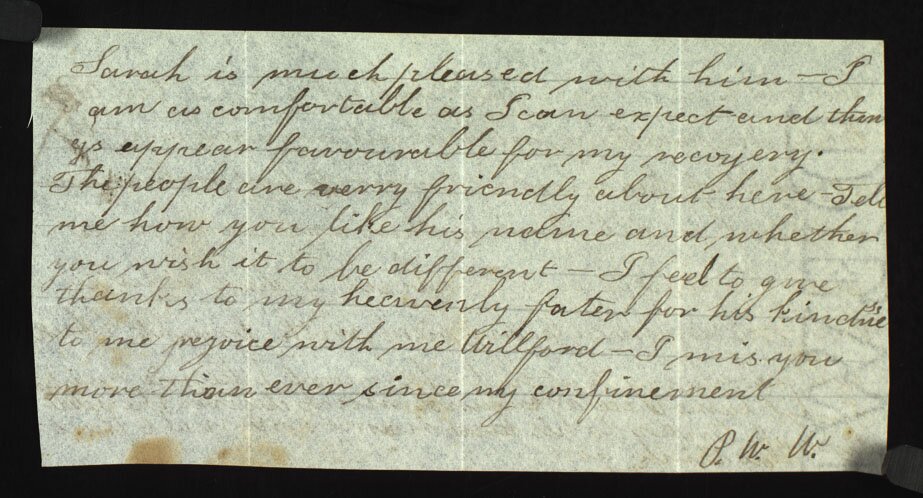 Sarah is much pleased with him – I
am as comfortable as I can expect and thin
gs appear favourable for my recovery.
The people are verry friendly about here – Tell
me how you like his name and whether
you wish it to be different – I feel to give
thanks to my heavenly fater for his kindnes
to me rejoice with me Willford – I mis you
more than ever since my confinement
P. W. W.